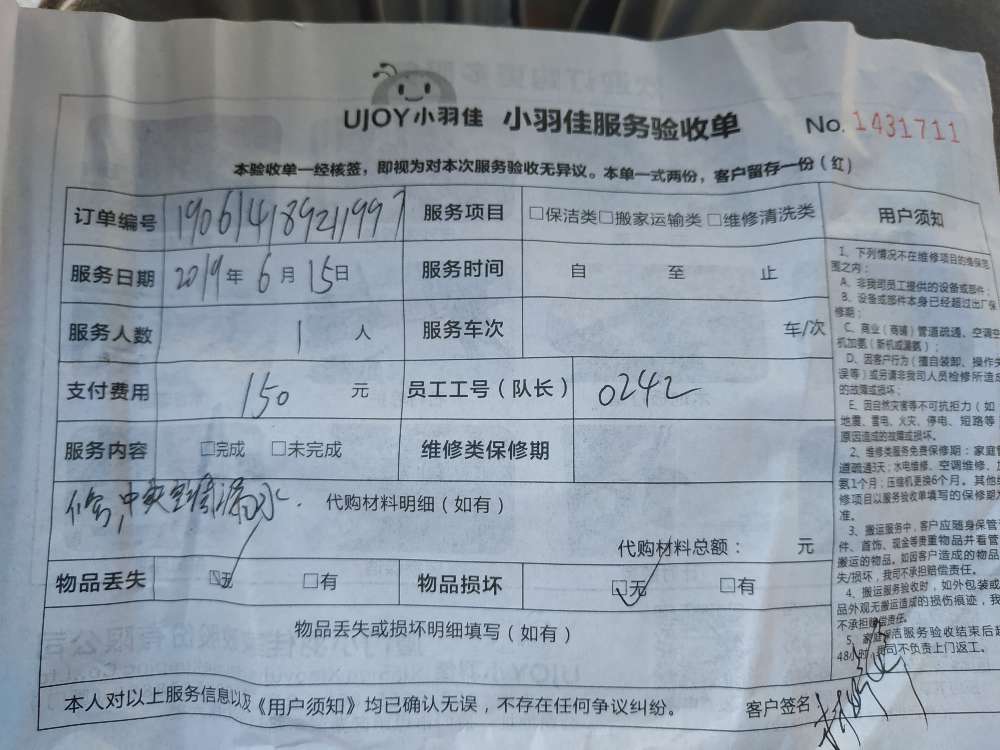 UJOY小羽佳 小羽佳服务验收单 No. 1431711
本验收单一经核签，即视为对本次服务验收无异议。本单一式两份，客户留存一份（红）
订单编号 190614189211997 服务项目 □保洁类□搬家运输类 □维修清洗类
服务日期 2019年 6月 15日 服务时间 自 至 止
服务人数 1 人 服务车次 车/次
支付费用 150 元 员工工号（队长） 0242
服务内容 □完成 □未完成 维修类保修期
修，中央空调漏水. 代购材料明细（如有）
代购材料总额： 元
物品丢失 □无 □有 物品损坏 □无 □有
物品丢失或损坏明细填写（如有）
本人对以上服务信息以及《用户须知》均已确认无误，不存在任何争议纠纷。 客户签名
用户须知
1、下列情况不在维修项目的维保范
围之内：
A、非我司员工提供的设备或部件；
B、设备或部件本身已经超过出厂保
修期；
C、商业（商铺）管道疏通、空调空
机加氨（新机或漏氨）；
D、因客户行为（擅自装卸、操作失
误等）或另请非我司人员检修所造成
的故障或损坏；
E、因自然灾害等不可抗拒力（如
地震、雷电、火灾、停电、短路等
原因造成的故障或损坏。
2、维修类服务免费保修期：家庭管
道疏通3天；水电维修、空调维修、加
氨1个月；压缩机更换6个月。其他维
修项目以服务验收单填写的保修期为
准。
3、搬运服务中，客户应随身保管
件、首饰、现金等贵重物品并看管
搬运的物品。如因客户造成的物品
失/损坏，我司不承担赔偿责任。
4、搬运服务验收时，如外包装或
品外观无搬运造成的损伤痕迹，我
不承担赔偿责任。
5、家庭保洁服务验收结束后超
48小时，我司不负责上门返工。